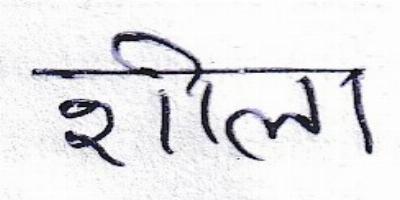 शीला